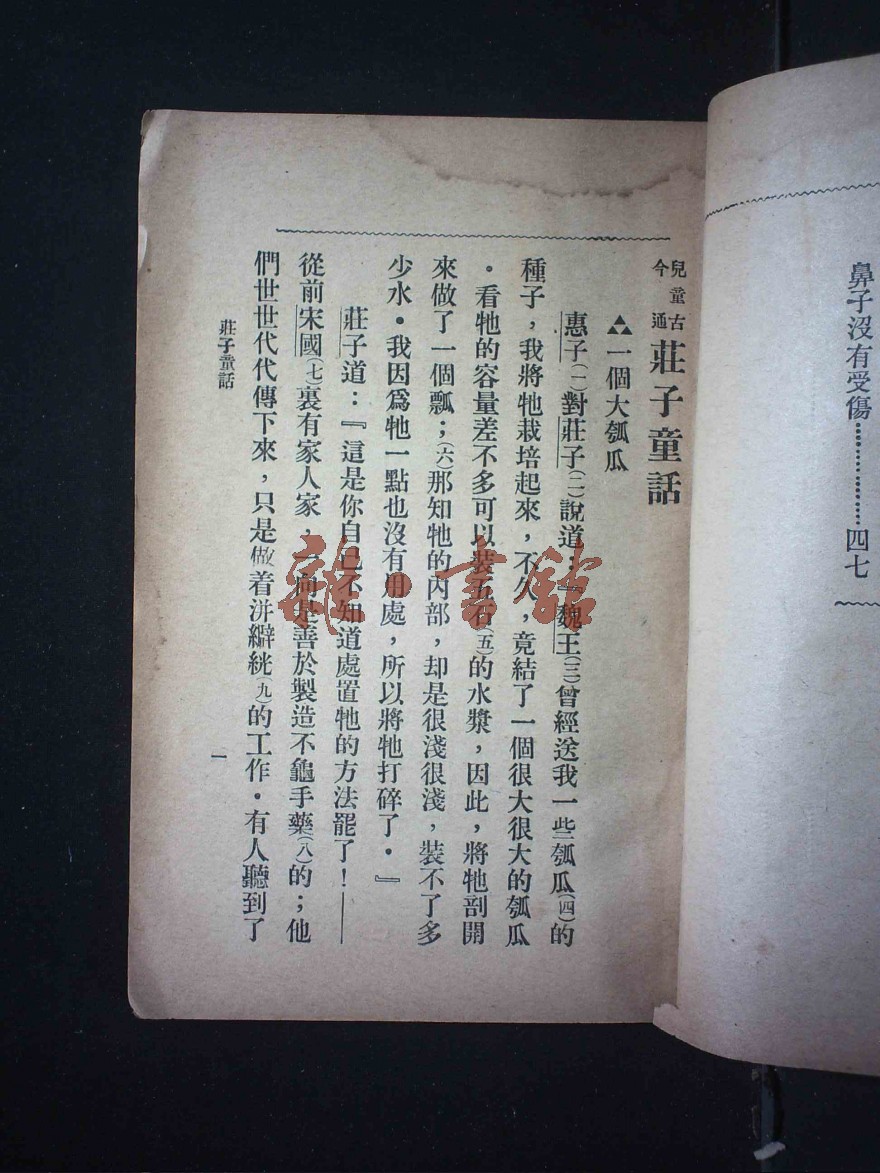 鼻子沒有受傷…………四七
兒童古今通
莊子童話
一個大瓠瓜
惠子(一)對莊子(二)說道：『魏王(三)曾經送我一些瓠瓜(四)的
種子，我將牠栽培起來，不久，竟結了一個很大很大的瓠瓜
。看牠的容量差不多可以裝五石(五)的水漿，因此，將牠剖開
來做了一個瓢；(六)那知牠的內部，却是很淺很淺，裝不了多
少水。我因爲牠一點也沒有用處，所以將牠打碎了。』
莊子道：『這是你自己不知道處置牠的方法罷了！——
從前宋國(七)裏有家人家，一向是善於製造不龜手藥(八)的；他
們世世代代傳下來，只是做着洴澼絖(九)的工作。有人聽到了
莊子童話
一
雜·書館